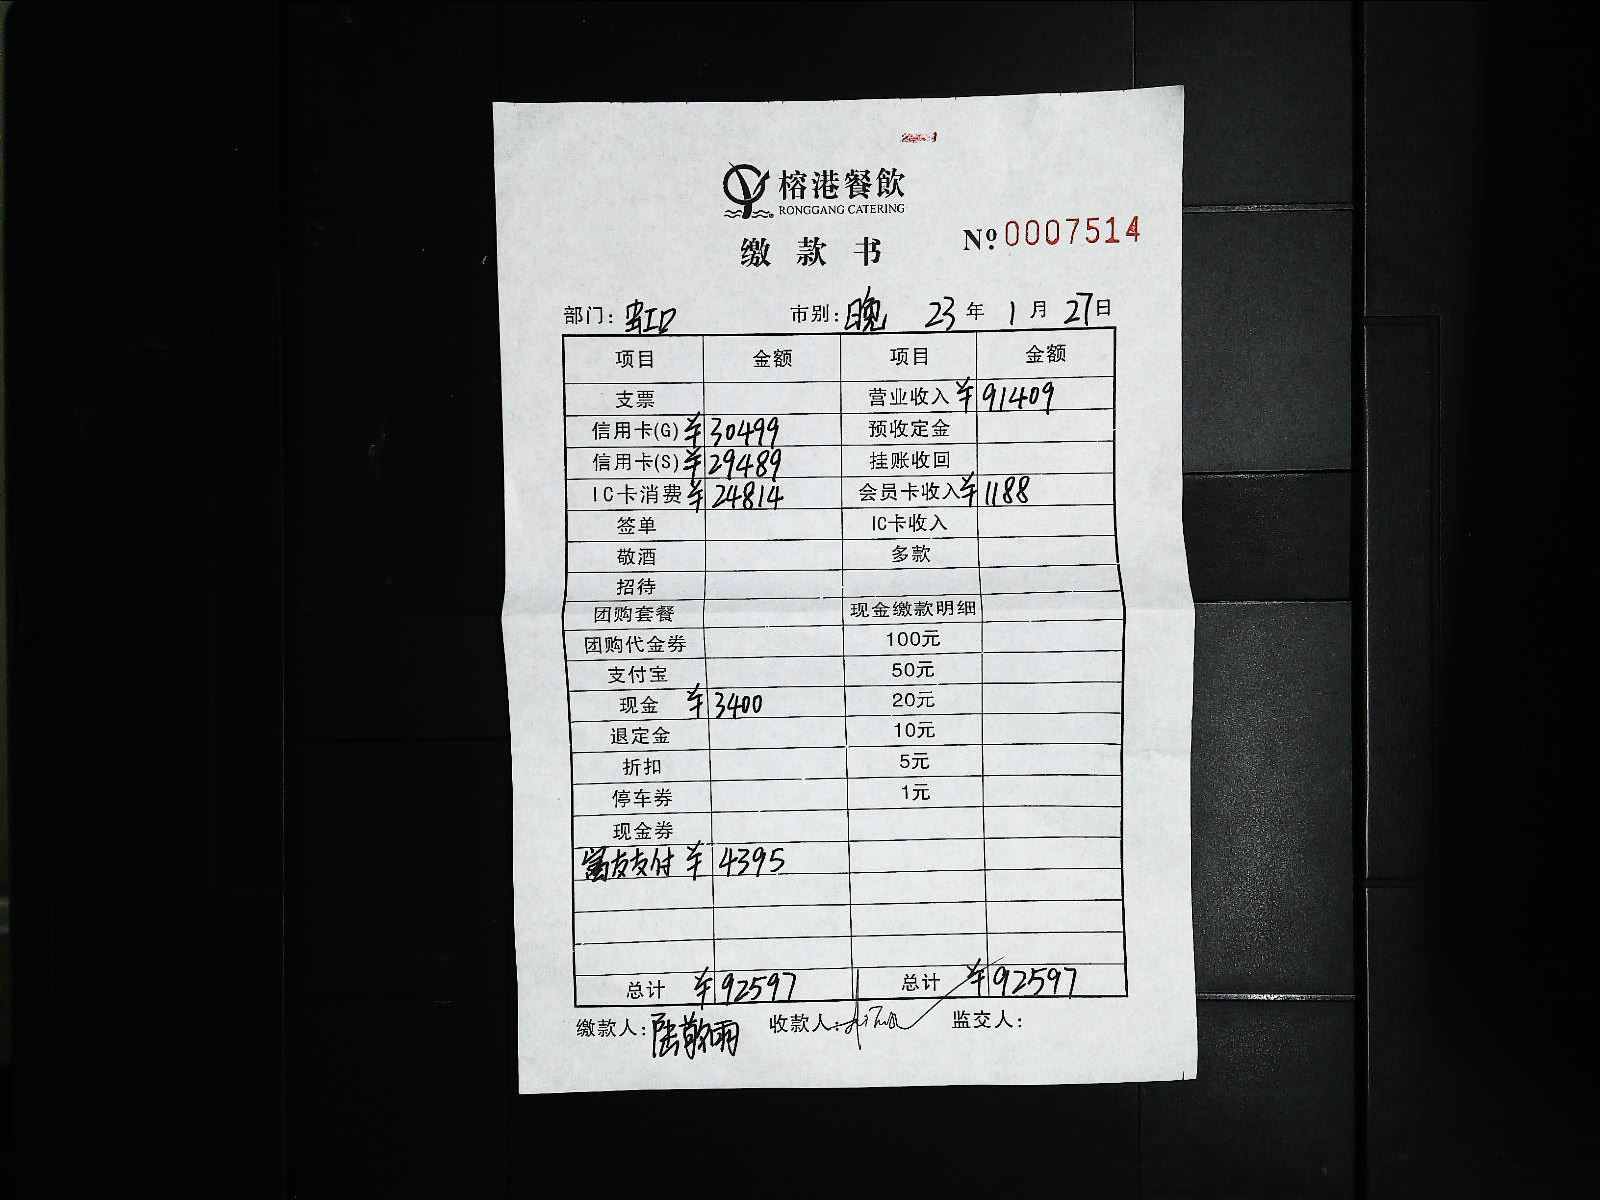 榕港餐飲
RONGGANG CATERING
缴款书 №0007514
部门: 虹口 市别: 晚 23年1月27日
项目 金额 项目 金额
支票 营业收入 ¥91409
信用卡(G) ¥30499 预收定金
信用卡(S) ¥29489 挂账收回
IC卡消费 ¥24814 会员卡收入 ¥1188
签单 IC卡收入
敬酒 多款
招待
团购套餐 现金缴款明细
团购代金券 100元
支付宝 50元
现金 ¥3400 20元
退定金 10元
折扣 5元
停车券 1元
现金券
富友支付 ¥4395
总计 ¥92597 总计 ¥92597
缴款人: 陆敬雨 收款人: 监交人: